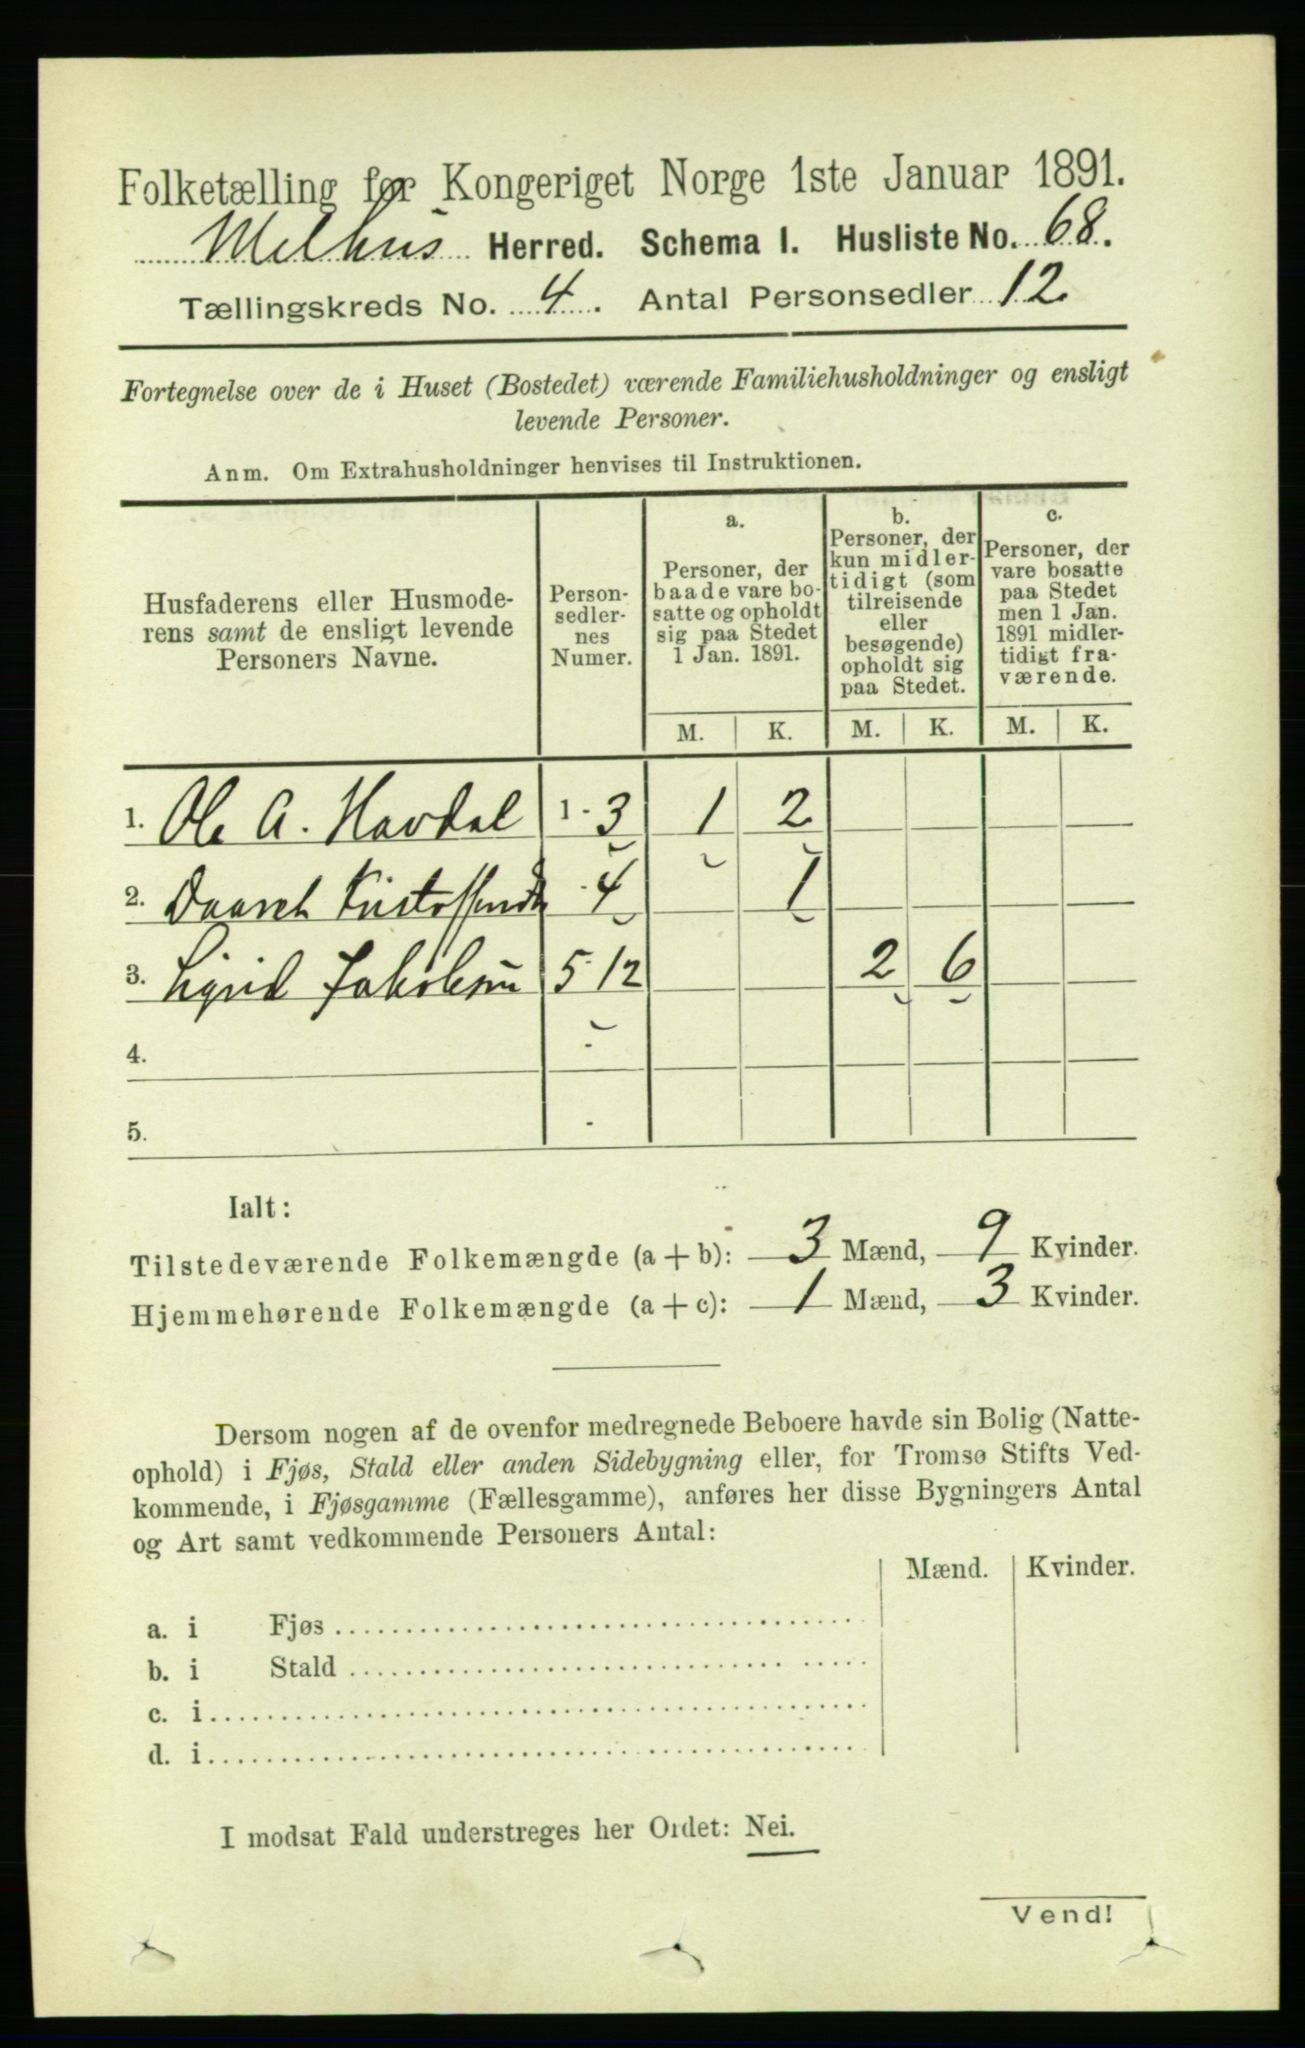 Folketælling før Kongeriget Norge 1ste Januar 1891.
Melhus Herred. Schema I. Husliste No. 68.
Tællingskreds No. 4. Antal Personsedler 12.
Fortegnelse over de i Huset (Bostedet) værende Familiehusholdninger og ensligt
levende Personer.
Anm. Om Extrahusholdninger henvises til Instruktionen.
Husfaderens eller Husmode-
rens samt de ensligt levende
Personers Navne.
Person-
sedler-
nes
Numer.
a.
Personer, der
baade vare bo-
satte og opholdt
sig paa Stedet
1 Jan. 1891.
b.
Personer, der
kun midler-
tidigt (som
tilreisende
eller
besøgende)
opholdt sig
paa Stedet.
c.
Personer, der
vare bosatte
paa Stedet
men 1 Jan.
1891 midler-
tidigt fra-
værende.
M. K. M. K. M. K.
1. Ole A. Havdal 1-3 1 2
2. 4 1
3. Sigrid 5-12 2 6
4. -
5. -
Ialt:
Tilstedeværende Folkemængde (a + b): 3 Mænd, 9 Kvinder.
Hjemmehørende Folkemængde (a + c): 1 Mænd, 3 Kvinder.
Dersom nogen af de ovenfor medregnede Beboere havde sin Bolig (Natte-
ophold) i Fjøs, Stald eller anden Sidebygning eller, for Tromsø Stifts Ved-
kommende, i Fjøsgamme (Fællesgamme), anføres her disse Bygningers Antal
og Art samt vedkommende Personers Antal:
Mænd. Kvinder.
a. i Fjøs
b. i Stald
c. i
d. i
I modsat Fald understreges her Ordet: Nei.
Vend!